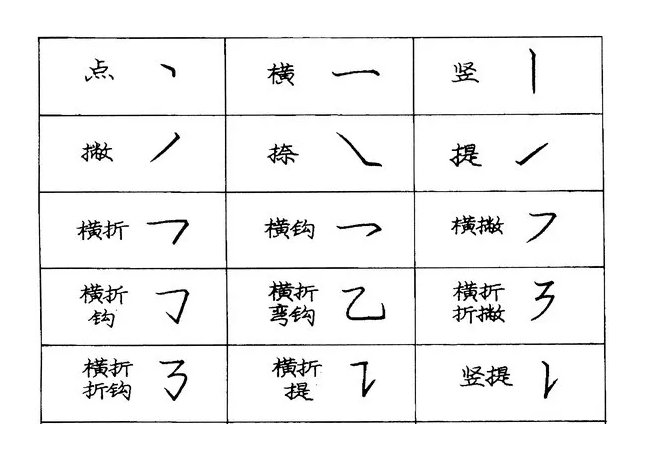 点 丶
横 一
竖 丨
撇 丿
捺 ㇏
提 ㇀
横折 ㇕
横钩 ㇖
横撇 ㇇
横折
钩 ㇆
横折
弯钩 乙
横折
折撇 ㇋
横折
折钩 ㇡
横折
提 ㇊
竖提 ㇙